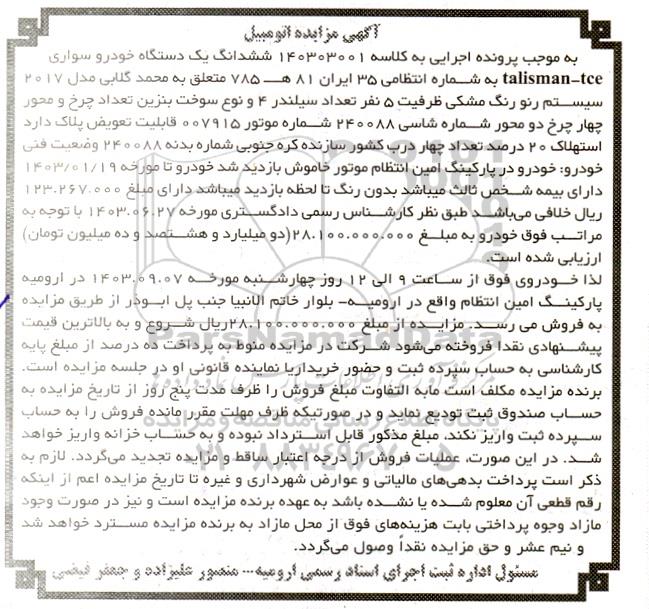 آگهی مزایده اتومبیل
به موجب پرونده اجرایی به کلاسه ۱۴۰۳۰۳۰۰۱ ششدانگ یک دستگاه خودرو سواری
talisman-tce به شماره انتظامی ۳۵ ایران ۸۱ هـــ ۷۸۵ متعلق به محمد گلابی مدل ۲۰۱۷
سیستم رنو رنگ مشکی ظرفیت ۵ نفر تعداد سیلندر ۴ و نوع سوخت بنزین تعداد چرخ و محور
چهار چرخ دو محور شماره شاسی ۲۴۰۰۸۸ شماره موتور ۰۰۷۹۱۵ قابلیت تعویض پلاک دارد
استهلاک ۲۰ درصد تعداد چهار درب کشور سازنده کره جنوبی شماره بدنه ۲۴۰۰۸۸ وضعیت فنی
خودرو: خودرو در پارکینگ امین انتظام موتور خاموش بازدید شد خودرو تا مورخه ۱۴۰۳/۰۱/۱۹
دارای بیمه شخص ثالث میباشد بدون رنگ تا لحظه بازدید میباشد دارای مبلغ ۱۲۳.۲۶۷.۰۰۰
ریال خلافی می‌باشد طبق نظر کارشناس رسمی دادگستری مورخه ۱۴۰۳.۰۶.۲۷ با توجه به
مراتب فوق خودرو به مبلغ ۲۸.۱۰۰.۰۰۰.۰۰۰(دو میلیارد و هشتصد و ده میلیون تومان)
ارزیابی شده است.
لذا خودروی فوق از ساعت ۹ الی ۱۲ روز چهارشنبه مورخه ۱۴۰۳.۰۹.۰۷ در ارومیه
پارکینگ امین انتظام واقع در ارومیه- بلوار خاتم الانبیا جنب پل ابوذر از طریق مزایده
به فروش می رسد. مزایده از مبلغ ۲۸.۱۰۰.۰۰۰.۰۰۰ریال شروع و به بالاترین قیمت
پیشنهادی نقدا فروخته می‌شود شرکت در مزایده منوط به پرداخت ده درصد از مبلغ پایه
کارشناسی به حساب سپرده ثبت و حضور خریداریا نماینده قانونی او در جلسه مزایده است.
برنده مزایده مکلف است مابه التفاوت مبلغ فروش را ظرف مدت پنج روز از تاریخ مزایده به
حساب صندوق ثبت تودیع نماید و در صورتیکه ظرف مهلت مقرر مانده فروش را به حساب
سپرده ثبت واریز نکند، مبلغ مذکور قابل استرداد نبوده و به حساب خزانه واریز خواهد
شد. در این صورت، عملیات فروش از درجه اعتبار ساقط و مزایده تجدید می‌گردد. لازم به
ذکر است پرداخت بدهی‌های مالیاتی و عوارض شهرداری و غیره تا تاریخ مزایده اعم از اینکه
رقم قطعی آن معلوم شده یا نشده باشد به عهده برنده مزایده است و نیز در صورت وجود
مازاد وجوه پرداختی بابت هزینه‌های فوق از محل مازاد به برنده مزایده مسترد خواهد شد
و نیم عشر و حق مزایده نقداً وصول می‌گردد.
مسئول اداره ثبت اجرای اسناد رسمی ارومیه... منصور علیزاده و جعفر فیضی
ParsNamadData
۰۲۱-۸۸۳۴۹۶۷۰-۵